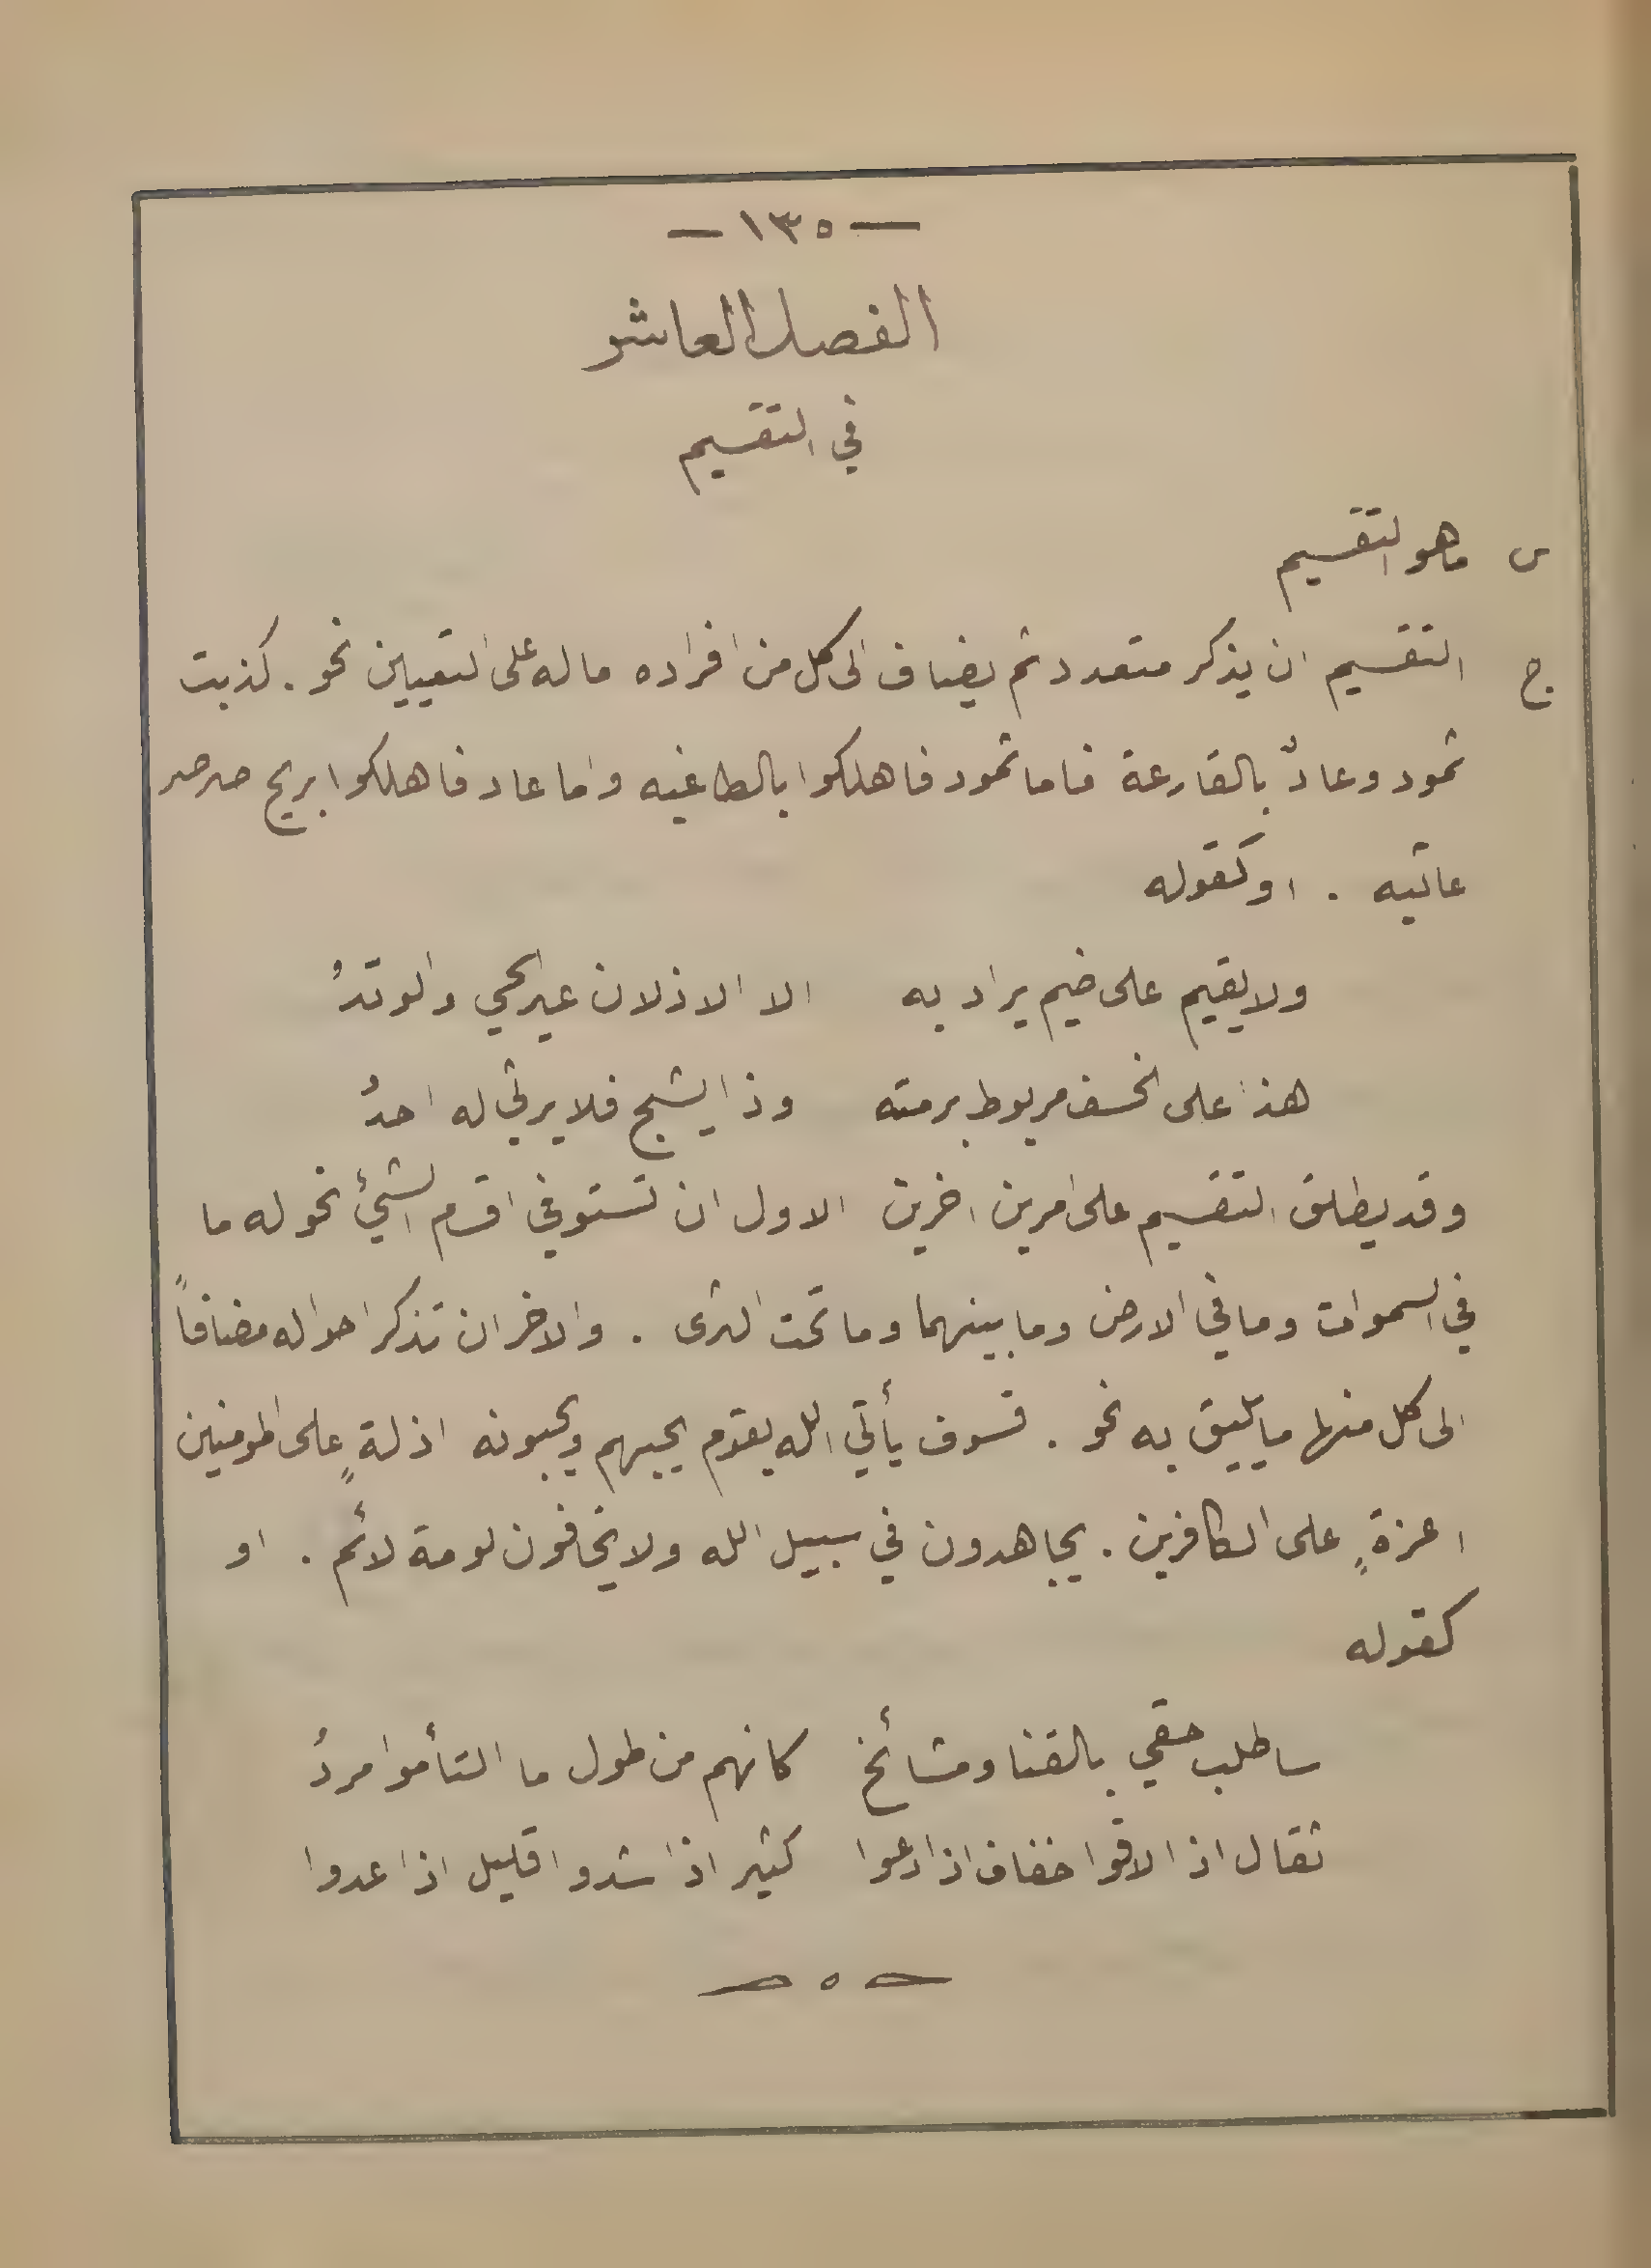 — ١٣٥ —
الفصل العاشر
في التقسيم
س ما هو التقسيم
ج التقسيم ان يذكر متعدد ثم يضاف الى كل من افراده ما له على التعيين نحو . كذبت
ثمود وعادٌ بالقارعة فاما ثمود فاهلكوا بالطاغيه واما عاد فاهلكوا بريح صرصر
عاتيه . او كقوله
ولا يقيم على ضيم يراد به الا الاذلان عير الحي والوتدُ
هذا على الخسف مربوط برمته وذا يشج فلا يرثي له احدُ
وقد يطلق التقسيم على امرين اخرين الاول ان تستوفي اقسام الشيْ نحو له ما
في السموات وما في الارض وما بينهما وما تحت الثرى . والاخر ان تذكر احواله مضافاً
الى كل منها ما يليق به نحو . فسوف يأتي الله بقوم يحبهم ويحبونه اذلةٍ على المومنين
اعزةٍ على الكافرين . يجاهدون في سبيل الله ولا يخافون لومة لائم . او
كقوله
ساطلب حقي بالقنا ومشائخ كانهم من طول ما التأموا مردُ
ثقال اذا لاقوا خفاف اذا دعوا كثير اذا شدوا قليل اذا عدوا